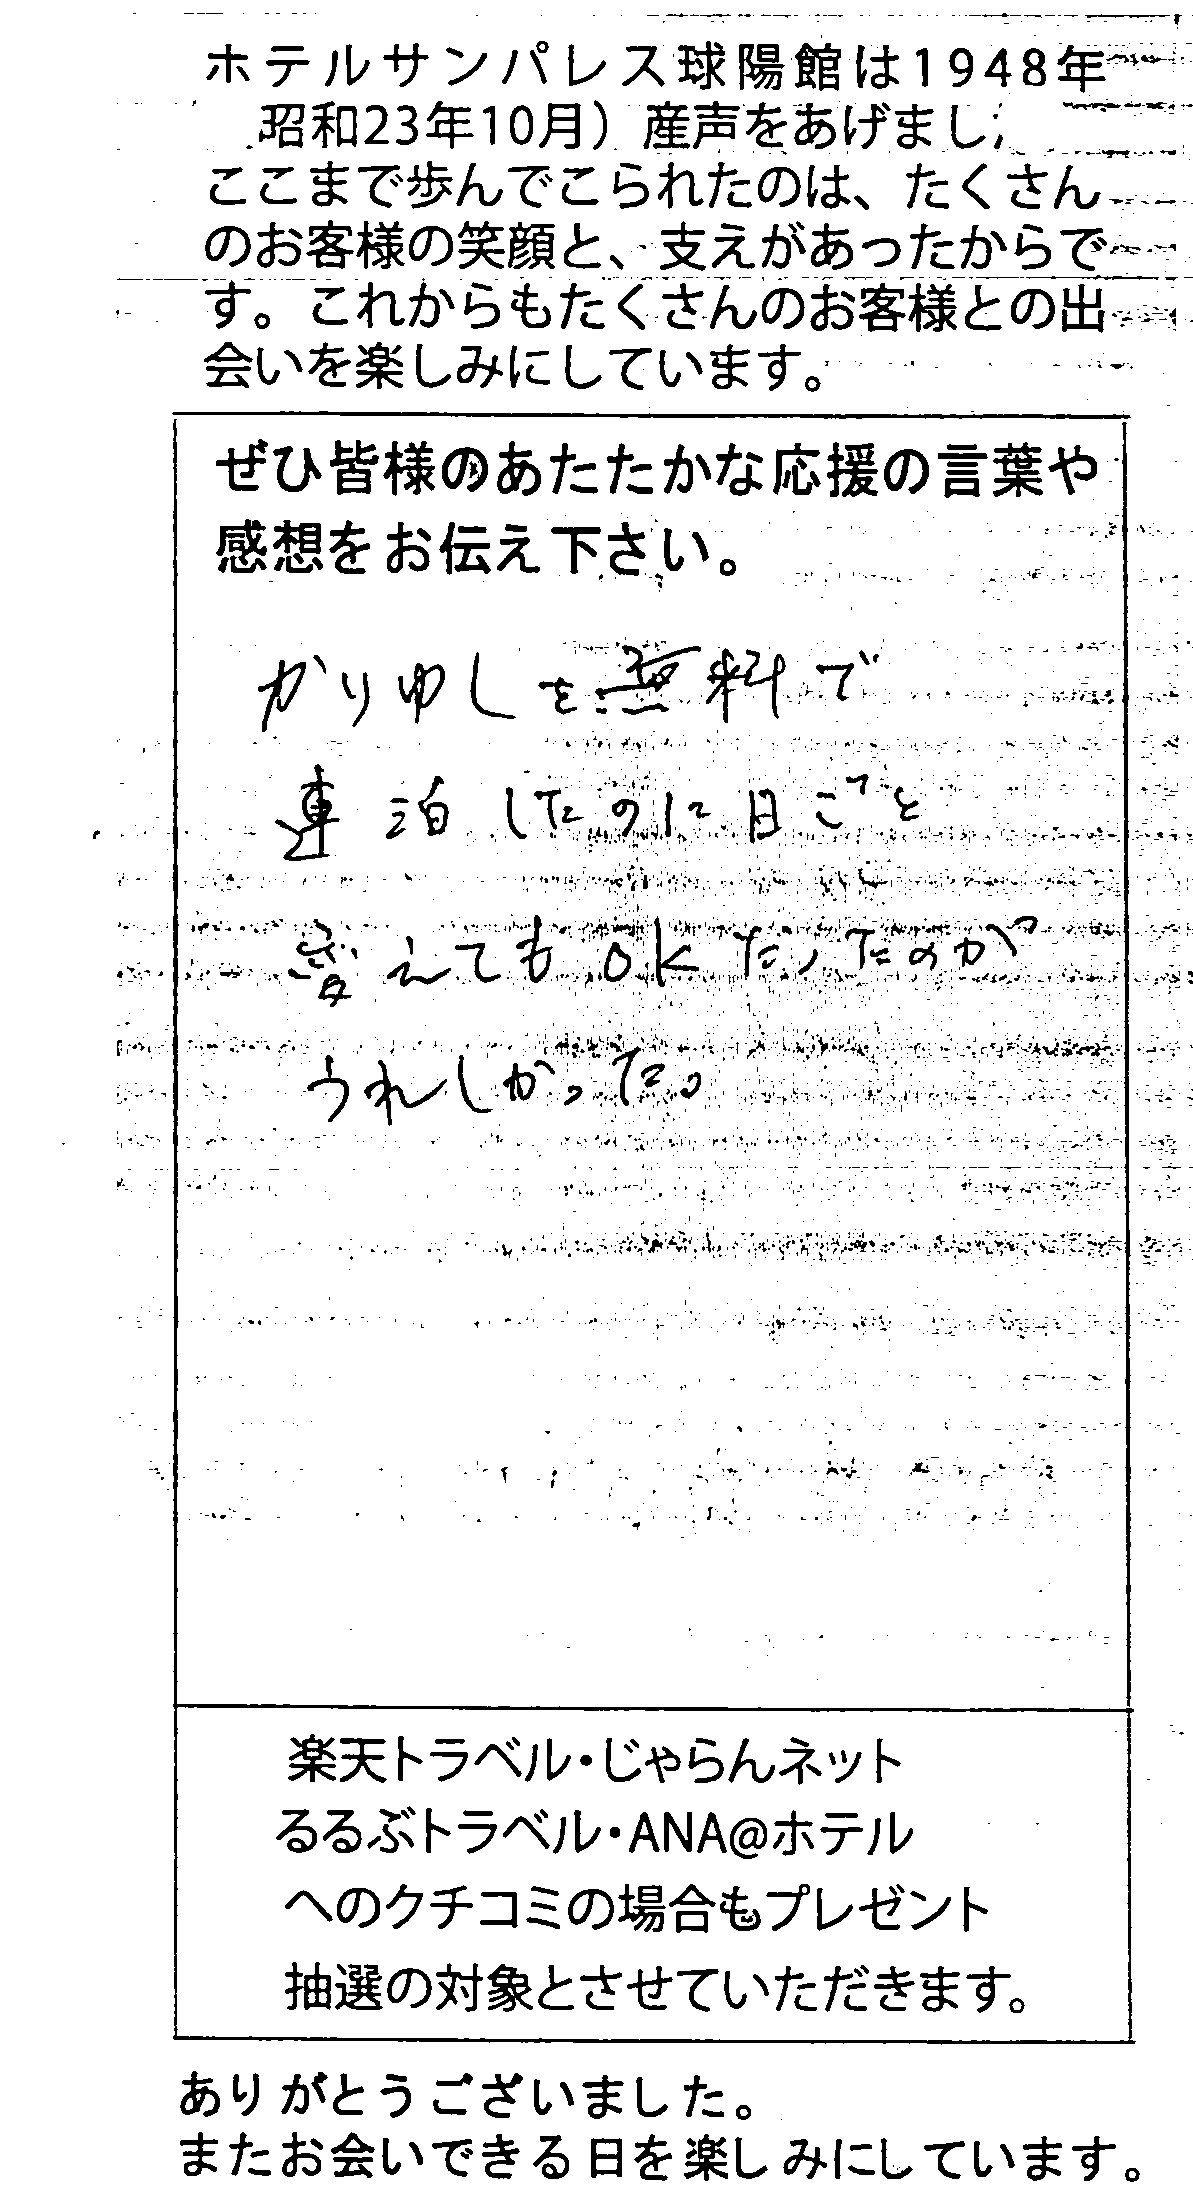 ホテルサンパレス球陽館は1948年
昭和23年10月）産声をあげまし
ここまで歩んでこられたのは、たくさん
のお客様の笑顔と、支えがあったからで
す。これからもたくさんのお客様との出
会いを楽しみにしています。
ぜひ皆様のあたたかな応援の言葉や
感想をお伝え下さい。
かりゆしを無料で
連泊したのに日ごと
変えてもOKだったのが
うれしかった。
楽天トラベル・じゃらんネット
るるぶトラベル・ANA@ホテル
へのクチコミの場合もプレゼント
抽選の対象とさせていただきます。
ありがとうございました。
またお会いできる日を楽しみにしています。